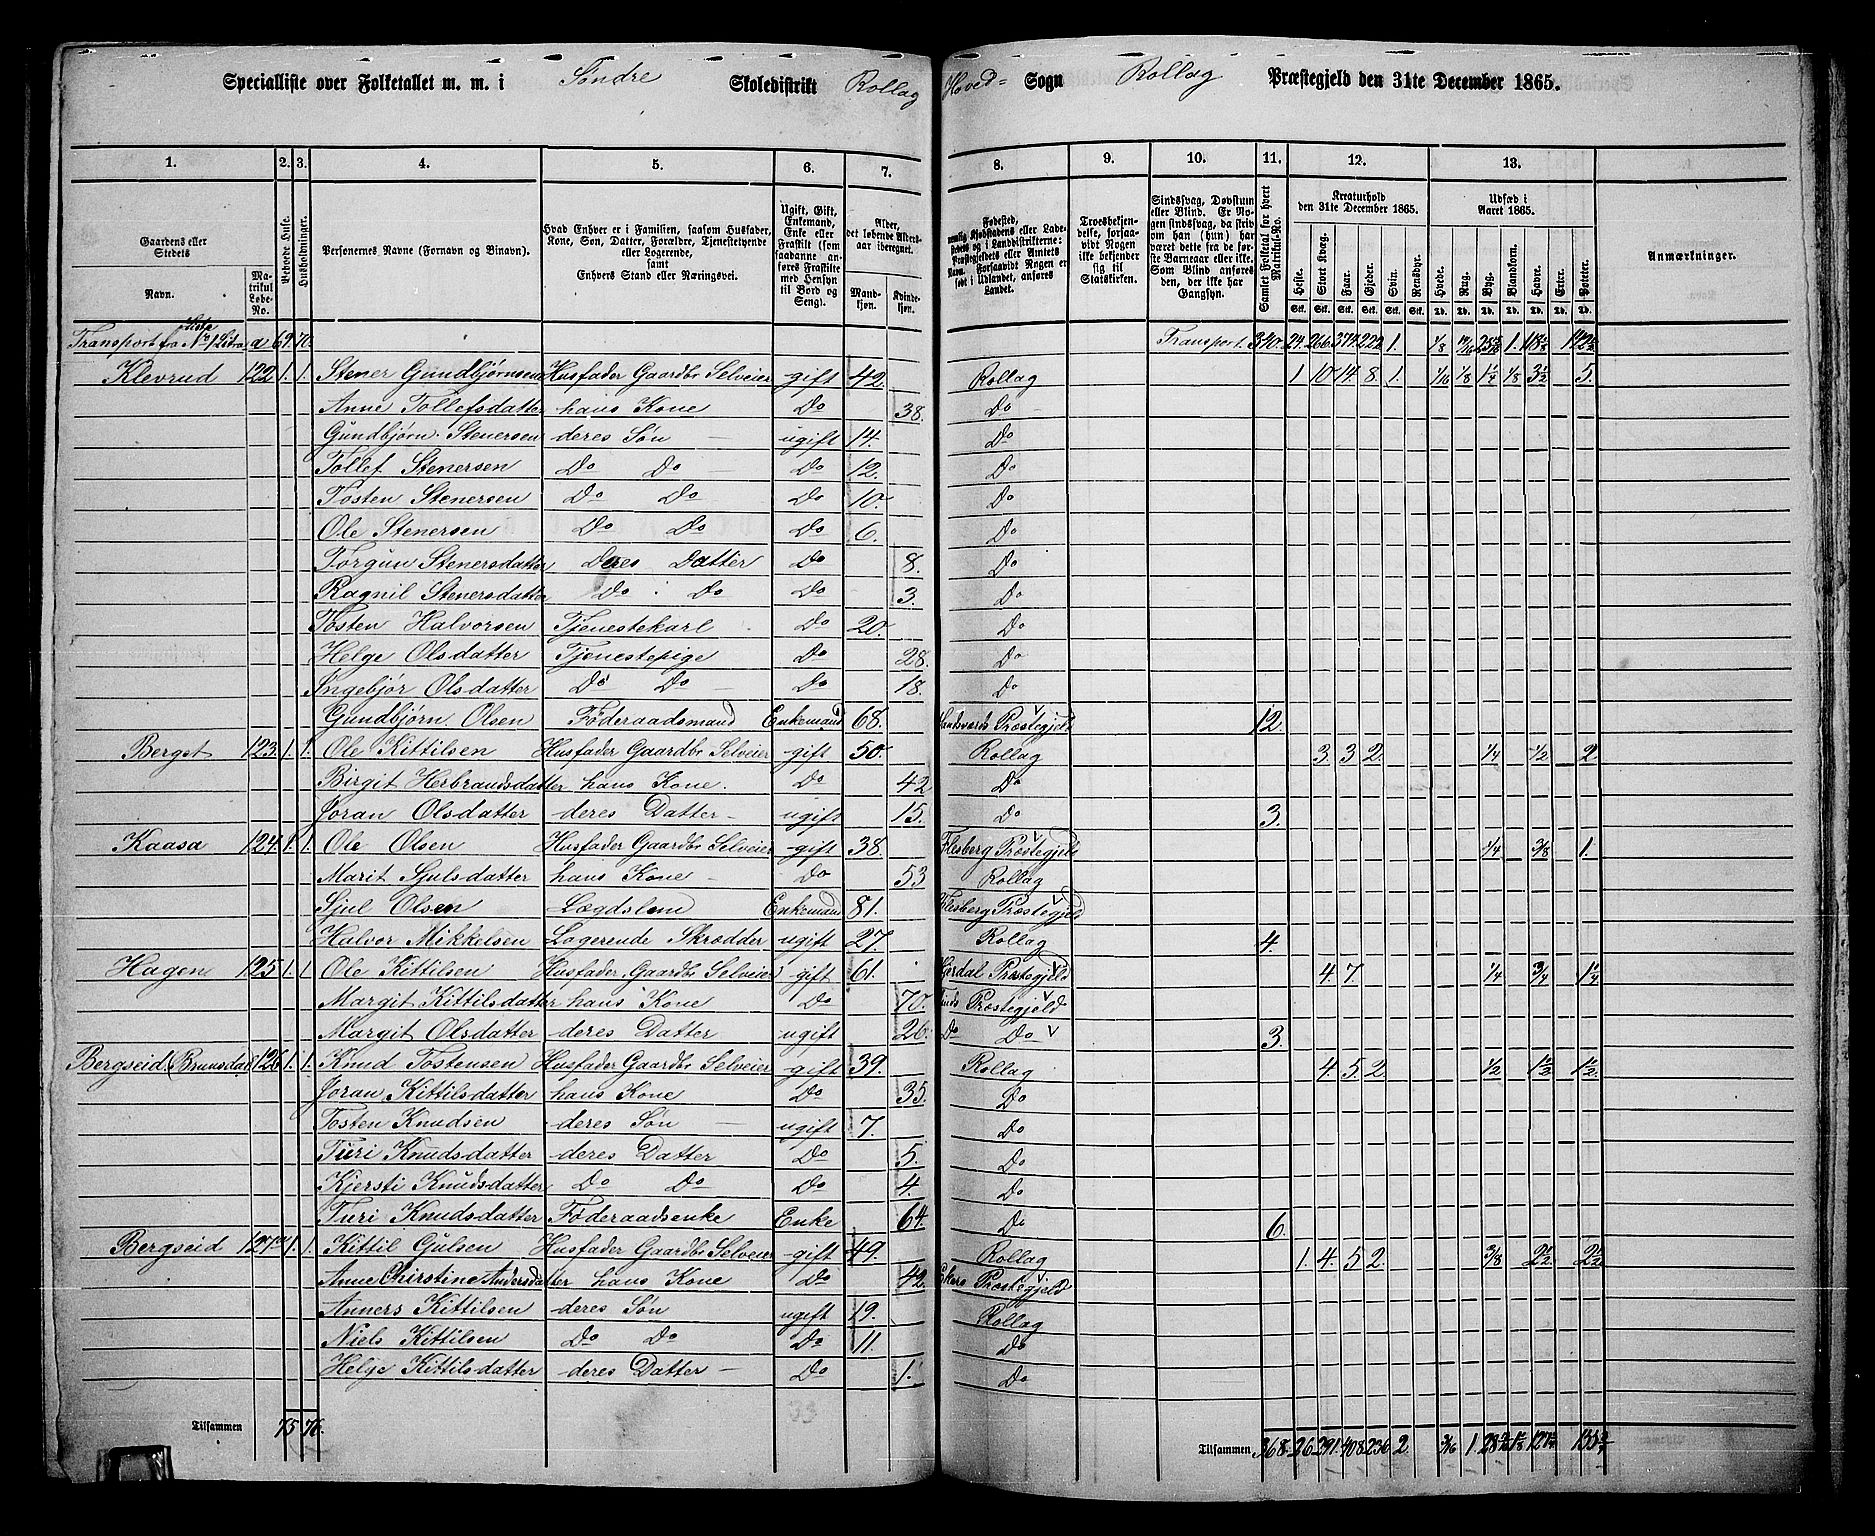 Specialliste over Folketallet m. m. i Søndre Skoledistrikt Rollag Hoved= Sogn Rollag Præstegjeld den 31te December 1865.
1. 2. 3. 4. 5. 6. 7. 8. 9. 10. 11. 12. 13.
Gaardens eller Stedets Navn. Matrikul Løbe-No.
Beboede Huse.
Husholdninger.
Personernes Navne (Fornavn og Binavn).
Hvad Enhver er i Familien, saasom Husfader, Kone, Søn, Datter, Forældre, Tjenestetyende eller Logerende, samt Enhvers Stand eller Næringsvei.
Ugift, Gift, Enkemand, Enke eller Fraskilt (som saadanne anføres Fraskilte med Hensyn til Bord og Seng).
Alder, det løbende Aldersaar iberegnet. Mandkjøn. Kvindekjøn.
Fødested, nemlig Kjøbstadens eller Ladestedets og i Landdistrikterne: Præstegjeldets eller Amtets Navn. Forsaavidt Nogen er født i Udlandet, anføres Landet.
Troesbekjendelse, forsaavidt Nogen ikke bekjender sig til Statskirken.
Sindssvag, Døvstum eller Blind. Er Nogen sindssvag, da skriv om han (hun) har været dette fra de første Barneaar eller ikke. Som Blind anføres den, der ikke har Gangsyn.
Samlet Folketal for hvert Matrikul-No.
Kreaturhold den 31te December 1865.
Heste. Stort Kvæg. Faar. Gjeder. Svin. Rensdyr.
Udsæd i Aaret 1865.
Hvede. Rug. Byg. Blandkorn. Havre. Erter. Poteter.
Anmærkninger.
Transport fra Liste No 1 Litra a 69. 70. Transport. 340. 24. 266. 374. 222. 1.
Klevrud 122 1. 1. Stener Gundbjørnsen Husfader Gaardbr Selveier gift 42. Rollag 1 10 14. 8. 1. 1/16 1/8 1 1/4 1/8 3 1/2 5.
Anne Tollefsdatter hans Kone Do 38. Do
Gundbjørn Stenersen deres Søn ugift 14. Do
Tollef Stenersen Do Do Do 12. Do
Tosten Stenersen Do Do Do 10. Do
Ole Stenersen Do Do Do 6. Do
Torgun Stenersdatter Deres Datter Do 8. Do
Ragnil Stenersdatter Do Do Do 3. Do
Tosten Halvorsen Tjenestekarl Do 20. Do
Helge Olsdatter Tjenestepige Do 28. Do
Ingebjør Olsdatter Do Do Do 18. Do
Gundbjørn Olsen Føderaadsmand Enkemand 68. Præstegjeld 12.
Berget 123. 1. 1. Ole Kittilsen Husfader Gaardbr Selveier gift 50. Rollag 3. 3 2. 1/4 1/2 2.
Birgit Herbrandsdatter hans Kone. Do 42 Do
Joran Olsdatter deres Datter ugift 15. Do 3.
Kaasa 124. 1. 1. Ole Olsen Husfader Gaardbr Selveier gift 38. Flesberg Præstegjeld 1/4 3/8 1.
Marit Sjulsdatter hans Kone Do 53 Rollag
Sjul Olsen Lægdslem Enkemand 81. Flesberg Præstegjeld
Halvor Mikkelsen Logerende Skrædder ugift 27 Rollag 4.
Hagen 125 1. 1 Ole Kittilsen Husfader Gaardbr Selveier gift 61. Hjerdal Præstegjeld 4. 7. 1/4 3/4 1 1/4
Margit Kittilsdatter hans Kone Do 70. Tinds Præstegjeld
Margit Olsdatter deres Datter ugift 26. Do Do 3.
Bergseid (Brunsdal) 126 1. 1. Knud Tostensen Husfader Gaardbr Selveier gift 39. Rollag 4. 5. 2. 1/2 1 1/2 1 1/2
Joran Kittilsdatter hans Kone Do 35. Do
Tosten Knudsen deres Søn ugift 7. Do
Turi Knudsdatter deres Datter Do 5. Do
Kjersti Knudsdatter Do Do Do 4. Do
Turi Knudsdatter Føderaadsenke Enke 64. Do 6.
Bergseid 127 1. 1. Kittil Gulsen Husfader Gaardbr Selveier gift 49. Rollag 1. 4. 5 2. 3/8 2 1/2 2 1/2
Anne Chirstine Andersdatter hans Kone Do 42. Ekers Præstegjeld
Anners Kittilsen deres Søn ugift 19. Rollag
Niels Kittilsen Do Do Do 11. Do
Helje Kittilsdatter deres Datter Do 1. Do
Tilsammen 75 76. Tilsammen 368. 26 291. 408. 236. 2.